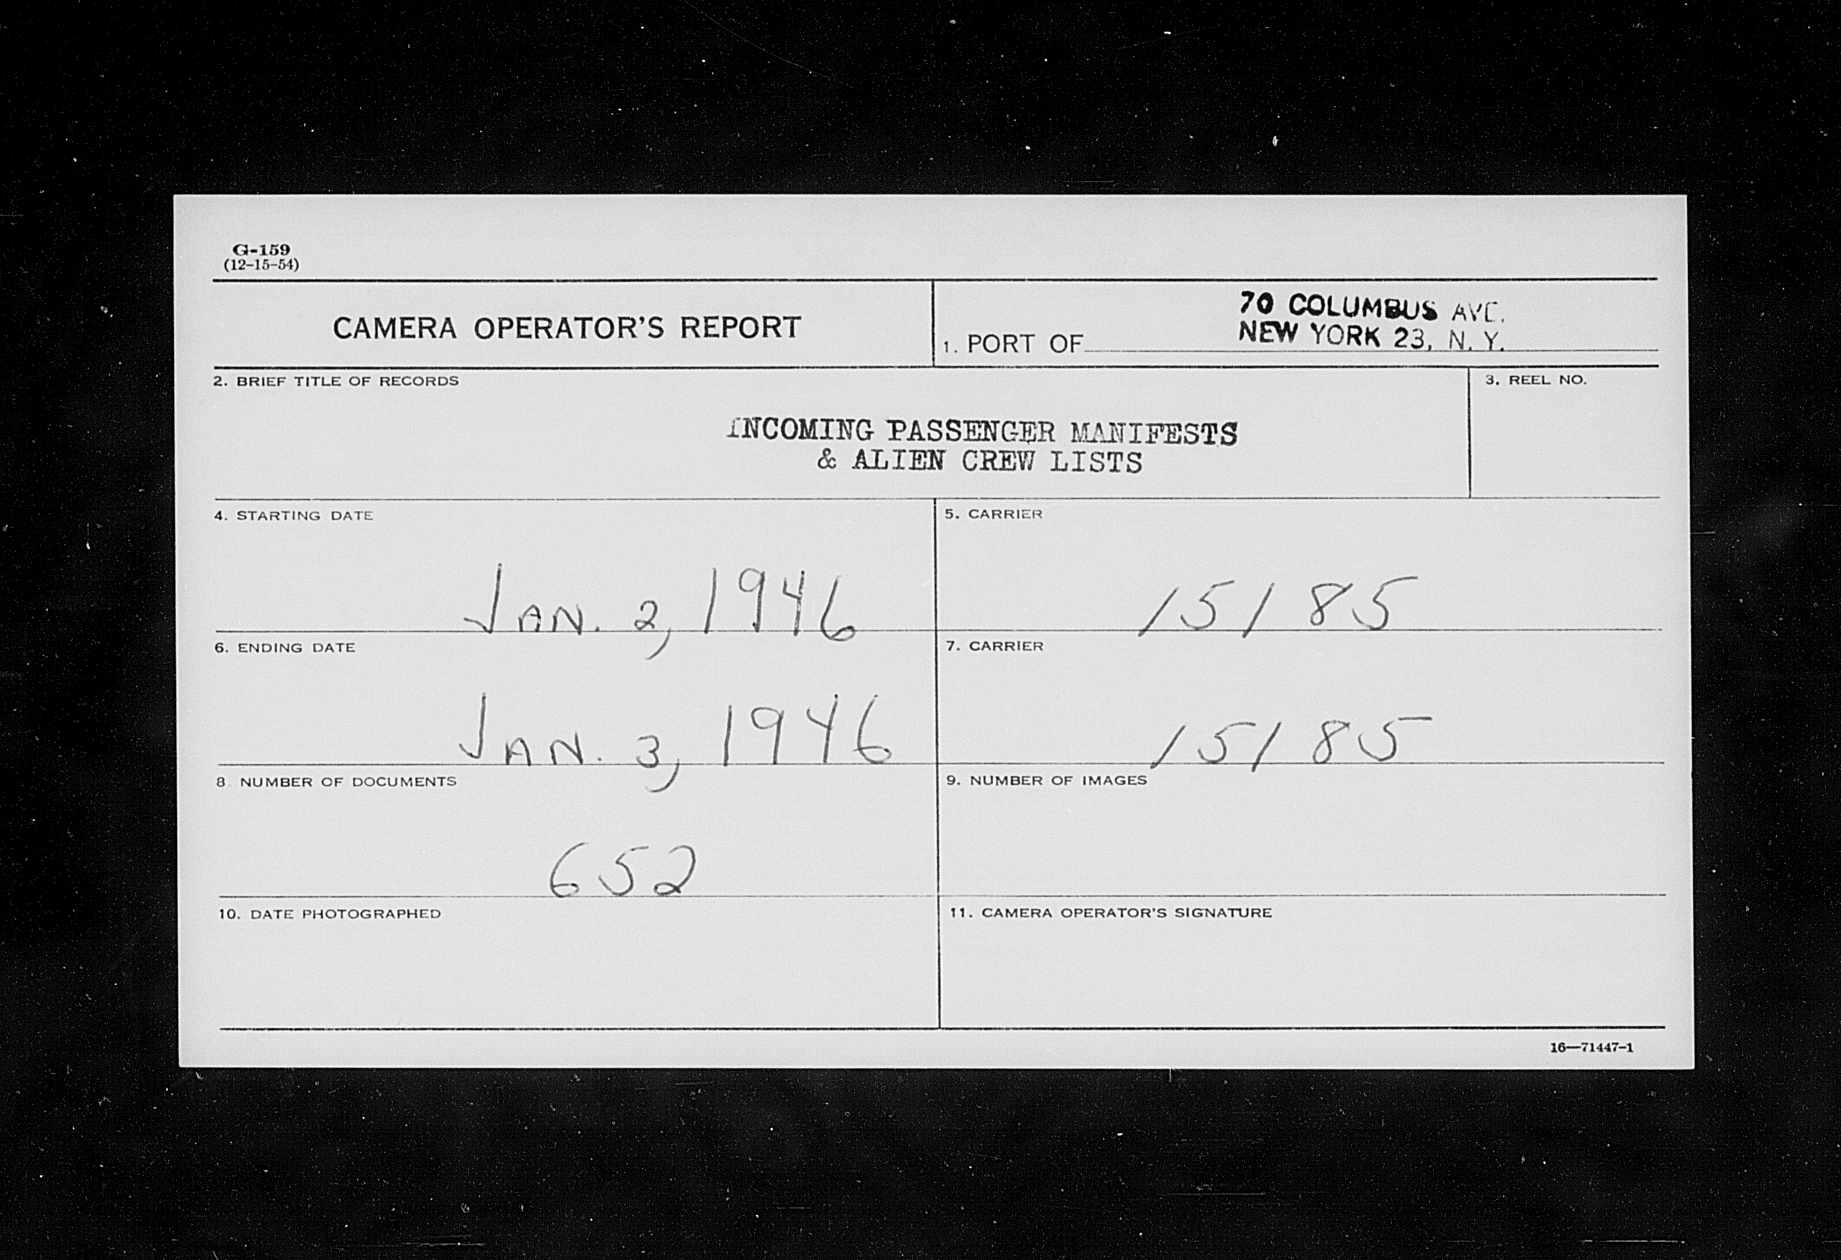 G-159
(12-15-54)
CAMERA OPERATOR'S REPORT
1. PORT OF
70 COLUMBUS AVE.
NEW YORK 23, N. Y.
2. BRIEF TITLE OF RECORDS
3. REEL NO.
INCOMING PASSENGER MANIFESTS
& ALIEN CREW LISTS
4. STARTING DATE
JAN. 2, 1946
5. CARRIER
15185
6. ENDING DATE
JAN. 3, 1946
7. CARRIER
15185
8 NUMBER OF DOCUMENTS
652
9. NUMBER OF IMAGES
10. DATE PHOTOGRAPHED
11. CAMERA OPERATOR'S SIGNATURE
16—71447-1